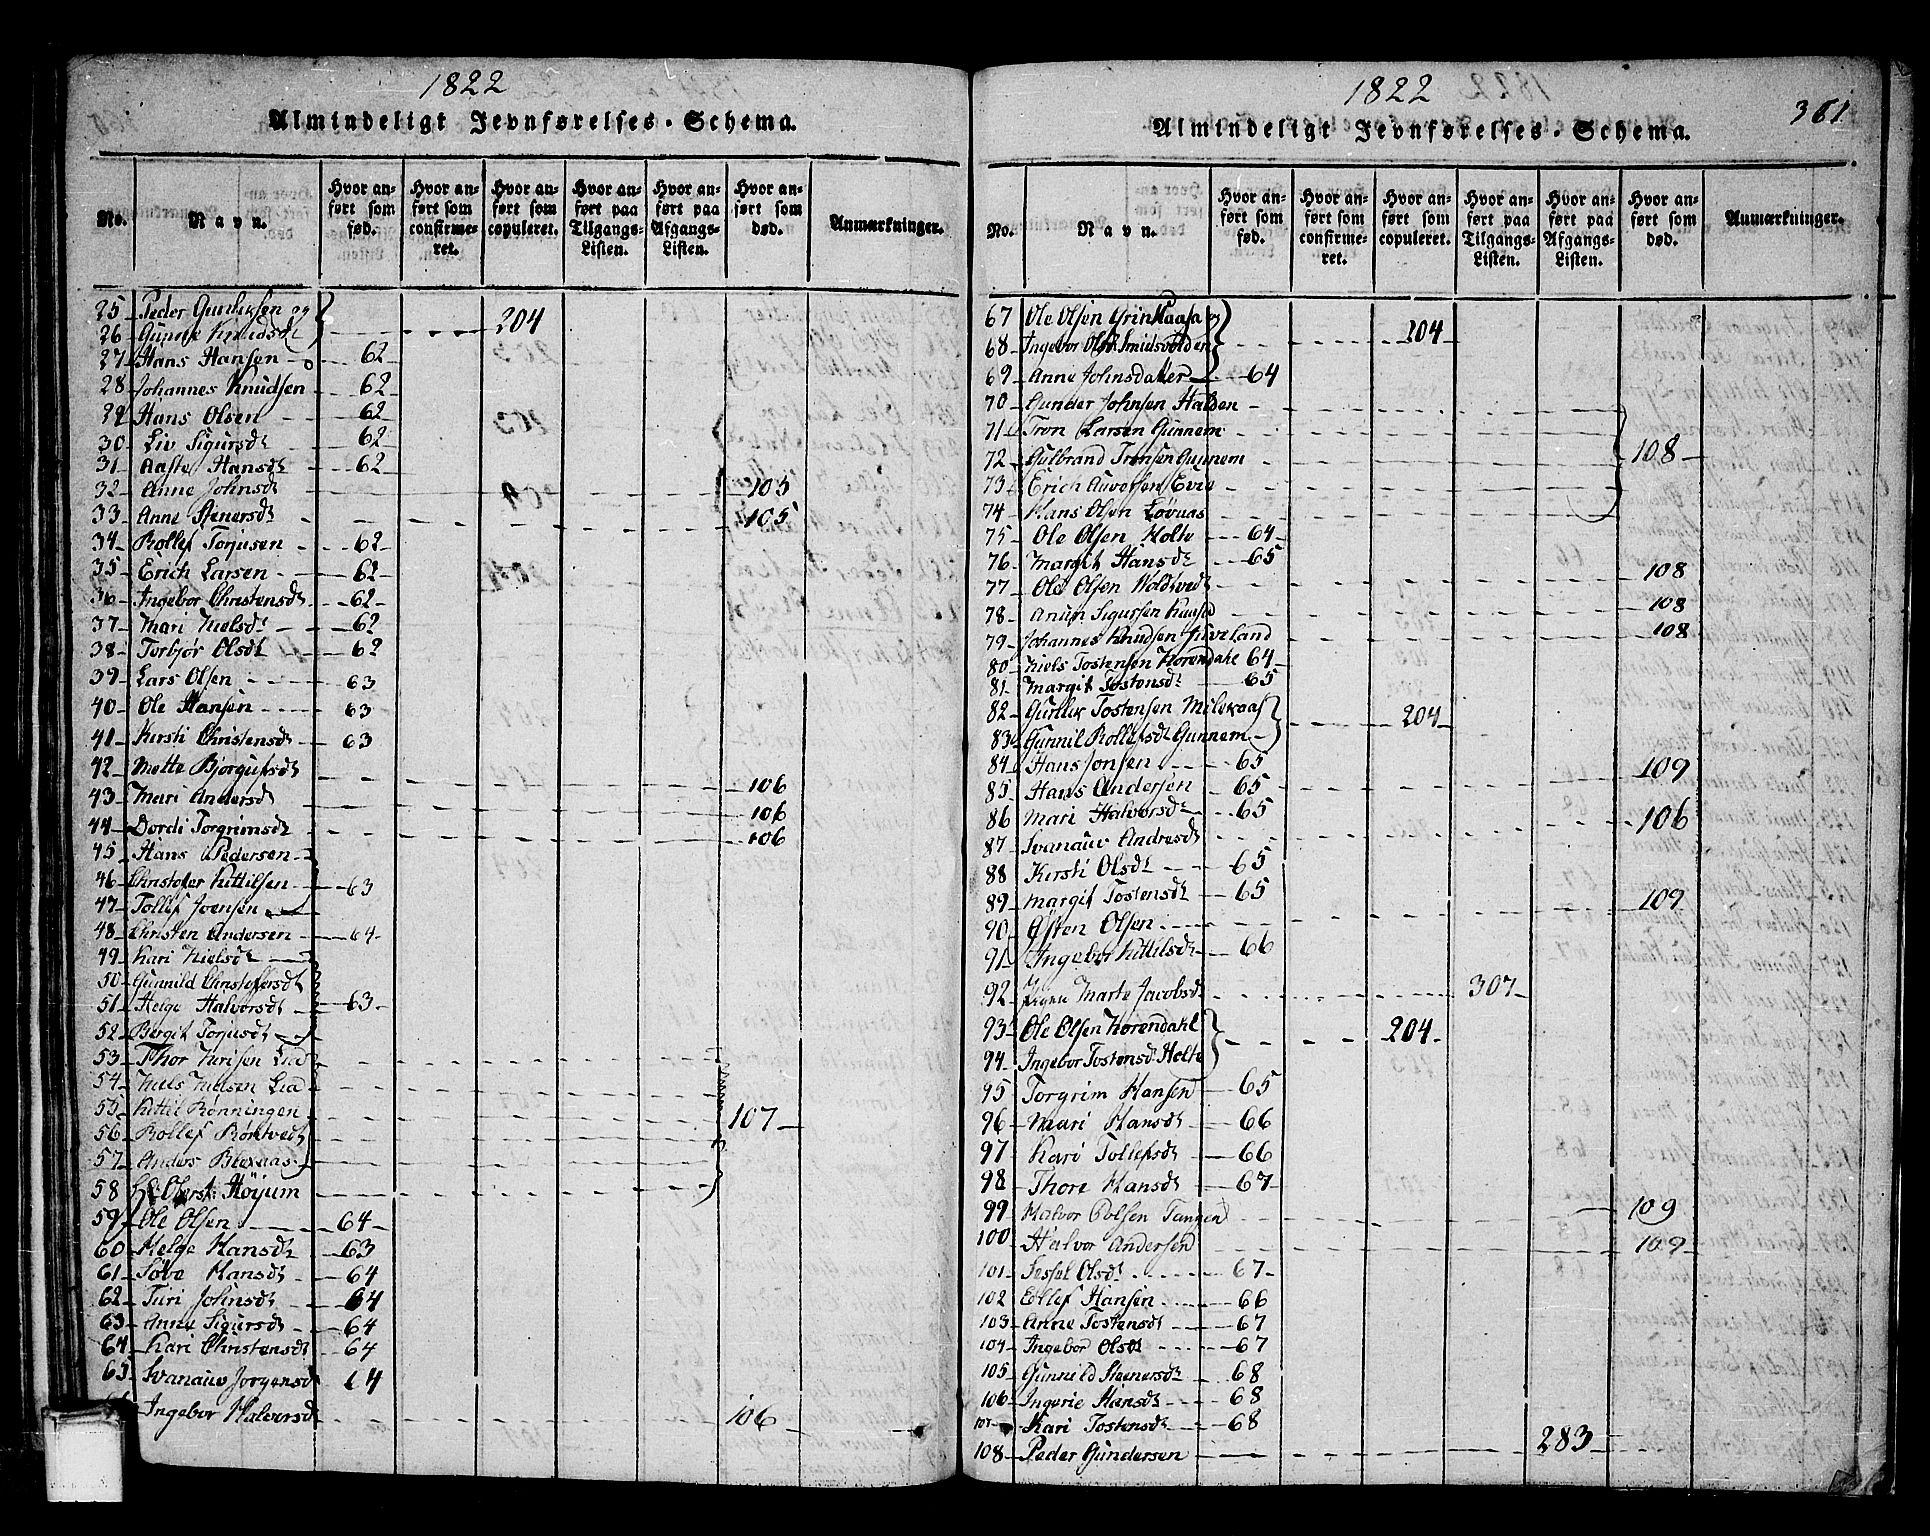 1822
Almindeligt Jevnførelses-Schema.
No.
Navn.
Hvor anført som fød.
Hvor anført som confirmeret.
Hvor anført som copuleret.
Hvor anført paa Tilgangs-Listen.
Hvor anført paa Afgangs-Listen.
Hvor anført som død.
Anmærkninger.
25 Peder Gunliksen og
26 Gunne Knudsdt 204
27 Hans Hansen 62
28 Johannes Knudsen 62
29 Hans Olsen 62
30 Liv Sigursdt 62
31 Aaste Hansdt 62
32 Anne Johnsdt 105
33 Anne Stenersdt 105
34 Rollef Torjusen 62
35 Erich Larsen 62
36 Ingebor Christensdt 62
37 Mari Nielsdt 62
38 Torbjør Olsdt 62
39 Lars Olsen 63
40 Ole Hansen 63
41 Kirsti Christensdt 63
42 Mette Bjorgufsdt 106
43 Mari Andersdt 106
44 Dordi Torgrimsdt 106
45 Hans Pedersen
46 Christofer Kittilsen 63
47 Tollef Joensen
48 Christen Andersen 64
49 Kari Nielsdt
50 Gunnild Christofersdt
51 Helge Halvorsdt 63
52 Bergit Torjusdt
53 Thor Lia
54 Niels Nielsen Lia
55 Kittil Rønningen 107
56 Rollef
57 Anders
58 Høyum
59 Ole Olsen 64
60 Helge Hansdt 63
61 Søve Hansdt 64
62 Turi Johnsdt 64
63 Anne Sigursdt 64
64 Kari Christensdt 64
65 Svanauv Jorgensdt 64
Ingebor Halvorsdt 106
1822
361
Almindeligt Jevnførelses-Schema.
No.
Navn.
Hvor anført som fød.
Hvor anført som confirmeret.
Hvor anført som copuleret.
Hvor anført paa Tilgangs-Listen.
Hvor anført paa Afgangs-Listen.
Hvor anført som død.
Anmærkninger.
67 Ole Olsen og
68 Ingebor Olsdt 204
69 Anne Johnsdatter 64
70 Gunder Johnsen Halden
71 Tron Larsen Gunnem
72 Gulbrand Tronsen Gunnem 108
73 Erich Auversen Evie
74 Hans Olsen Løvaas
75 Ole Olsen Holte 64
76 Margit Hansdt 65
77 Ole Olsen 108
78 Anun Sigursen Kaasa 108
79 Johannes Knudsen Juveland 108
80 Niels Tostensen Korendahl 64
81 Margit Tostensdt 65
82 Gurlik Tostensen
83 Gunnil Rollefsdt Gunnem 204
84 Hans Jonsen 65
85 Hans Andersen 65 109
86 Mari Halvorsdt 65
87 Svanauv Andresdt 106
88 Kirsti Olsdt 65
89 Margit Tostensdt 65
90 Østen Olsen 109
91 Ingebor Kittilsdt 66
92 Marte Jacobsdt 307
93 Ole Olsen Korendahl 204
94 Ingebor Tostensdt Holte
95 Torgrim Hansen 65
96 Mari Hansdt 66
97 Kari Tollefsdt 66
98 Thore Hansdt 67
99 Halvor Tangen 109
100 Halvor Andersen 109
101 Olsdt 67
102 Hansen 66
103 Anne Tostensdt 67
104 Ingebor Olsdt 67
105 Gunnild Stenersdt 68
106 Ingerie Hansdt 68
107 Kari Tostensdt 68
108 Peder Gundersen 283